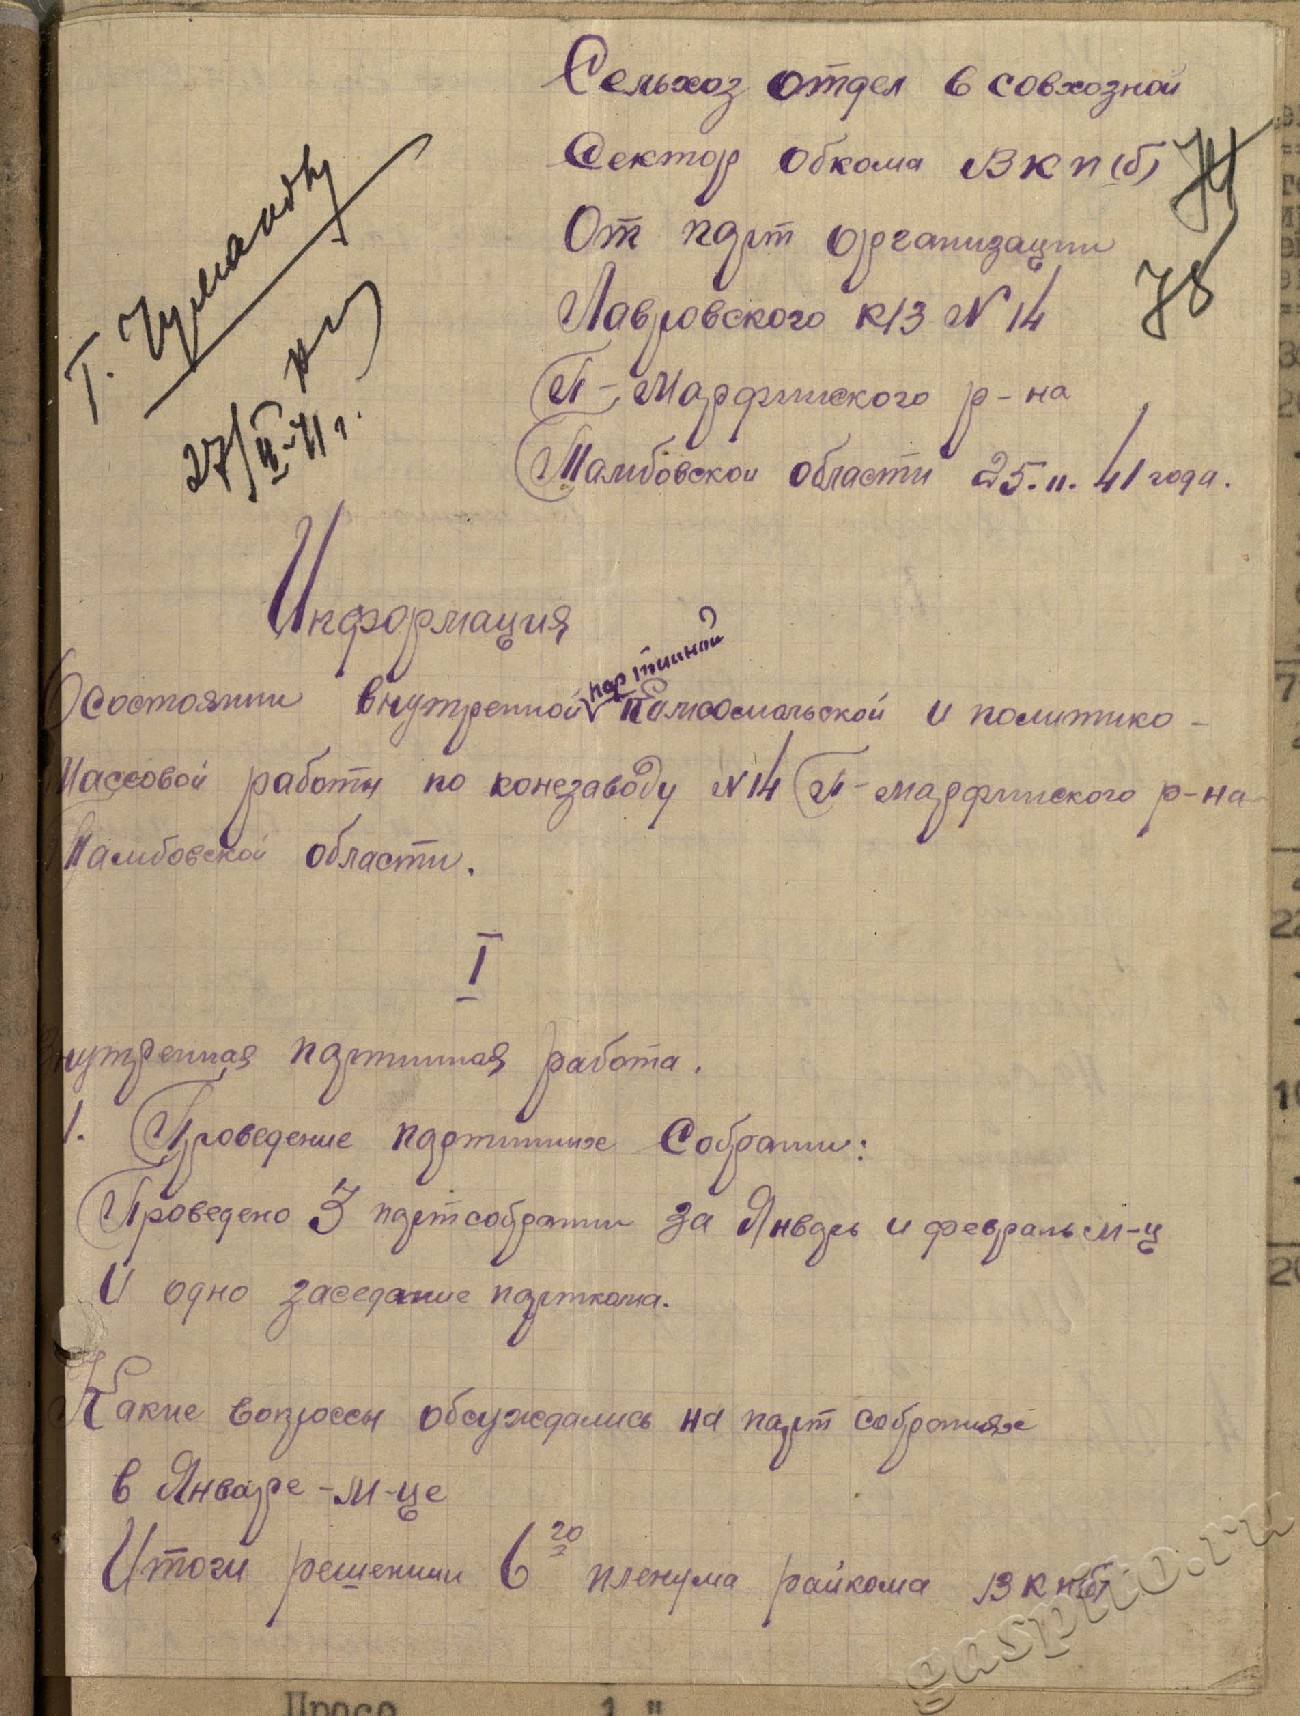 Сельхоз отдел в совхозной
Сектор обкома ВКП(б)
74
От парт организации
78
Лавровского к/з №14
П-Марфинского р-на
Тамбовской области 25.II.41 года.
Т. Чуманову
27/II-41г.
Информация
О состоянии внутренной партийной Комсомольской и политико-
Массовой работы по конезаводу №14 П-марфинского р-на
Тамбовской области.
I
Внутренная партииная работа.
1. Проведение партииных Собрании:
Проведено 3 партсобрании за Январь и февраль м-ц
И одно заседание парткома.
Какие вопроссы обсуждались на парт собраниях
в Январе-м-це
Итоги решении 6го пленума райкома ВКП(б)
gaspito.ru
Просо 1 "